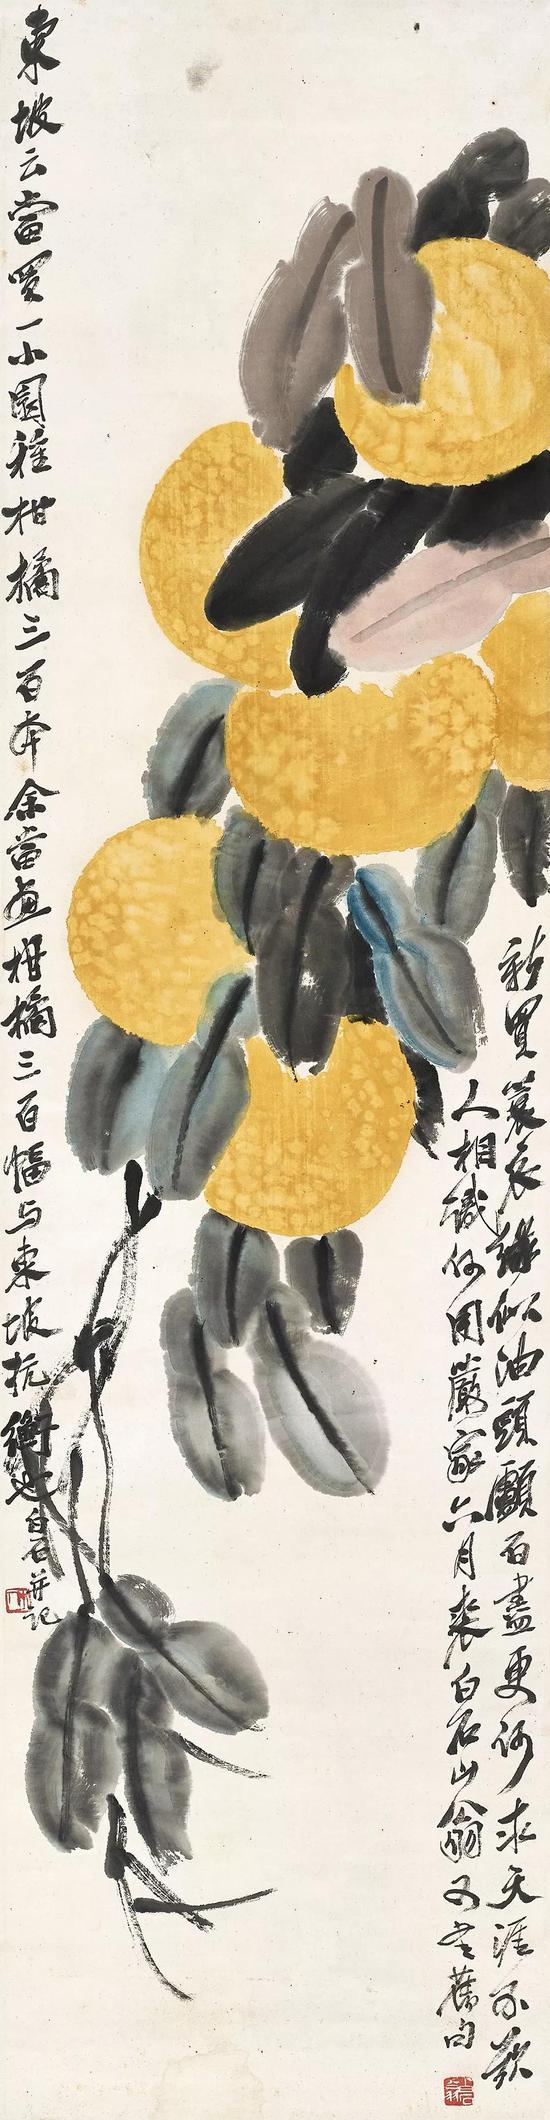 東坡云當買一小園種柑橘三百本余當畫柑橘三百幅与東坡抗衡也白石并記
新買蓑衣謙似油頭顱白盡更何求天涯不欲
人相識何用嚴家六月裘白石山翁又書舊句